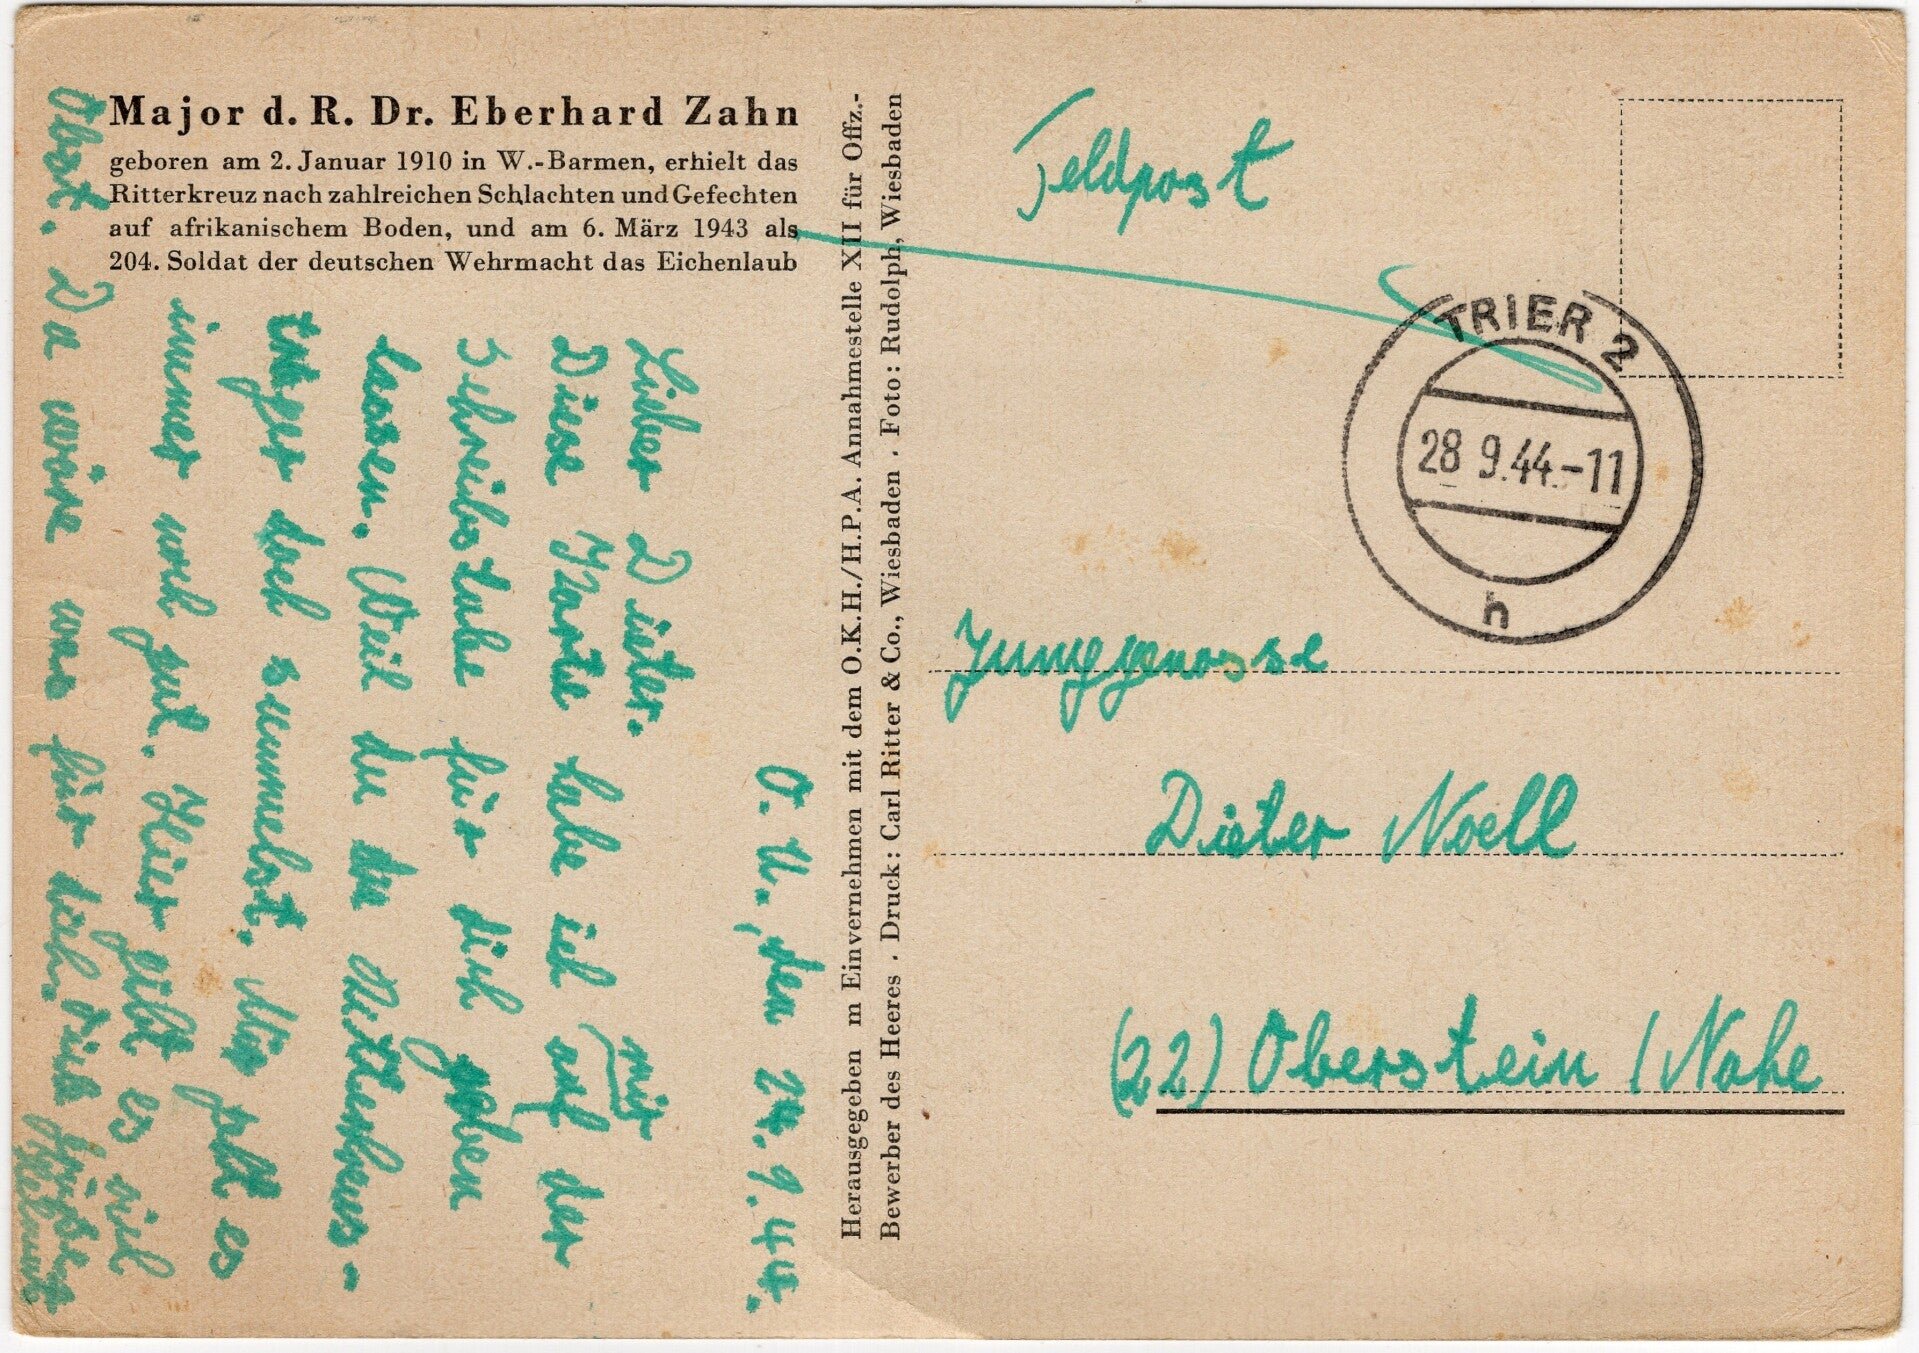 Major d. R. Dr. Eberhard Zahn
geboren am 2. Januar 1910 in W.-Barmen, erhielt das
Ritterkreuz nach zahlreichen Schlachten und Gefechten
auf afrikanischem Boden, und am 6. März 1943 als
204. Soldat der deutschen Wehrmacht das Eichenlaub
O.U., den 24.9.44.
Lieber Dieter.
mir
Diese Karte habe ich auf der
Schreibstube für dich geben
lassen. Weil du Ritterkreuz-
träger doch sammelst. Mir geht es
immer noch gut. Hier gibt es viel
Obst. Da wäre was für dich. Viele Grüße
Helmut
Herausgegeben m Einvernehmen mit dem O.K.H./H.P.A. Annahmestelle XII für Offz.-
Bewerber des Heeres . Druck: Carl Ritter & Co., Wiesbaden . Foto: Rudolph, Wiesbaden
Feldpost
TRIER 2
28 9.44.-11
h
Junggenosse
Dieter Noell
(22) Oberstein / Nahe